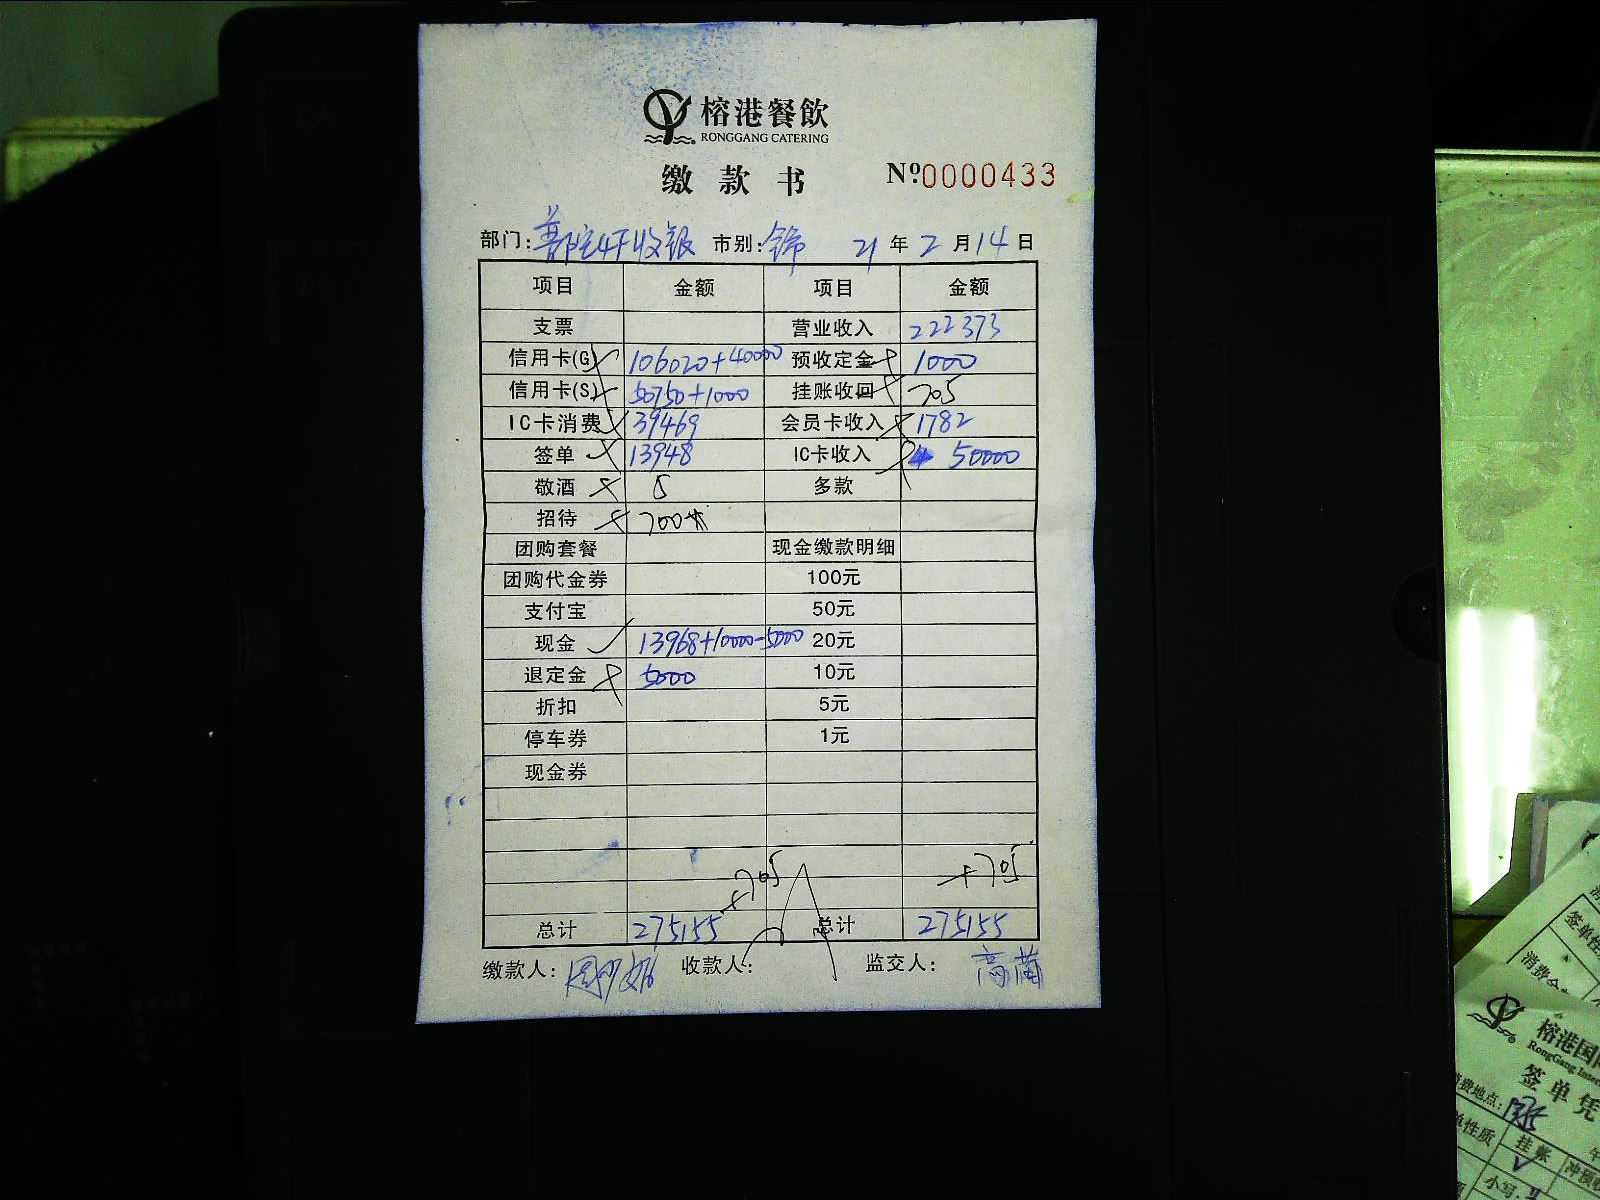 榕港餐飲
RONGGANG CATERING
缴款书 Nº0000433
部门: 收银 市别: 21年2月14日
项目 金额 项目 金额
支票 营业收入 222373
信用卡(G) 106020+40000 预收定金 1000
信用卡(S) 50750+1000 挂账收回 705
IC卡消费 39469 会员卡收入 1782
签单 13948 IC卡收入 50000
敬酒 多款
招待 700
团购套餐 现金缴款明细
团购代金券 100元
支付宝 50元
现金 13968+10000-5000 20元
退定金 5000 10元
折扣 5元
停车券 1元
现金券
+705 +705
总计 275155 总计 275155
缴款人: 收款人: 监交人:
签单性
消费金
榕港国
RongGang Inter
签单凭
费地点:
单性质 挂账 冲预
小写